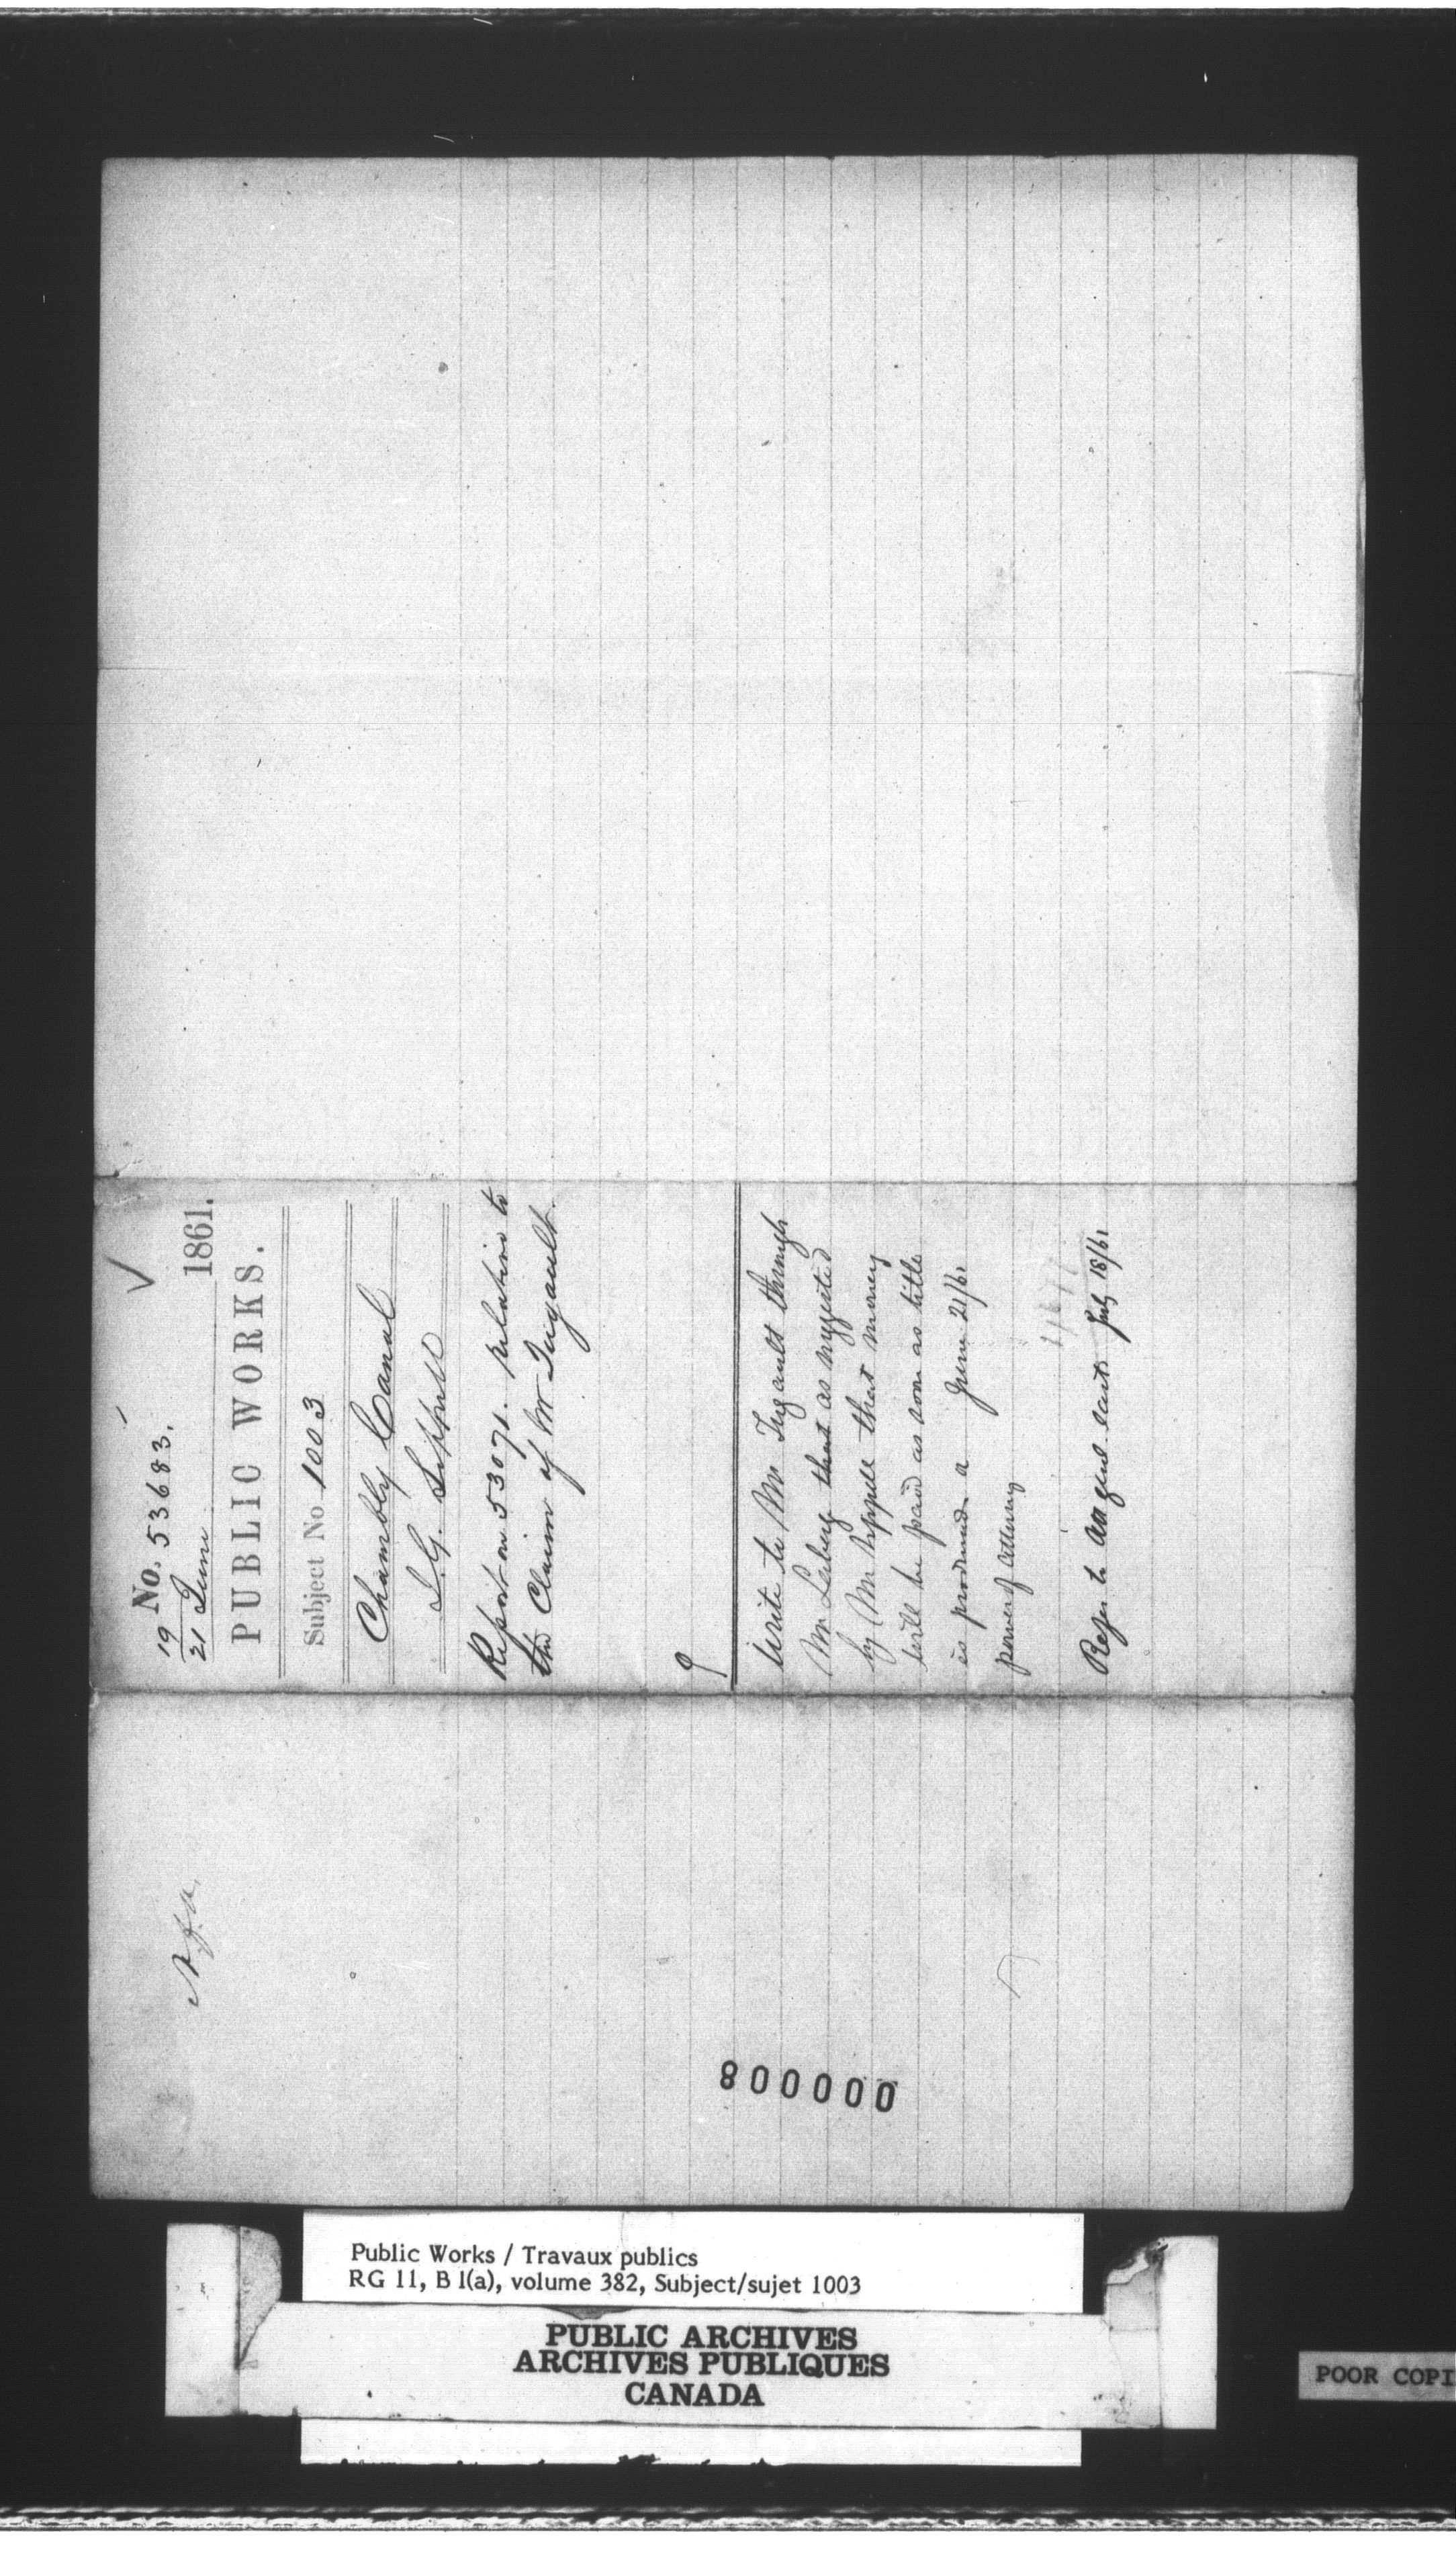 No. 53683.
19
21 June 1861.
PUBLIC WORKS.
Subject No. 1003
Chambly Canal
J.G. Sippell
Report on 53071. relative to
the Claim of Mr Tugault.
9
Write to Mr. Tugault through
Mr that as suggested
by Mr Sippell that money
will be paid as soon as title
is produced a June 21/61
power of attorney
Refer to Att genl east. July 18/61
N.f.a.
000008
Public Works / Travaux publics
RG 11, B 1(a), volume 382, Subject/sujet 1003
PUBLIC ARCHIVES
ARCHIVES PUBLIQUES
CANADA
POOR COPI